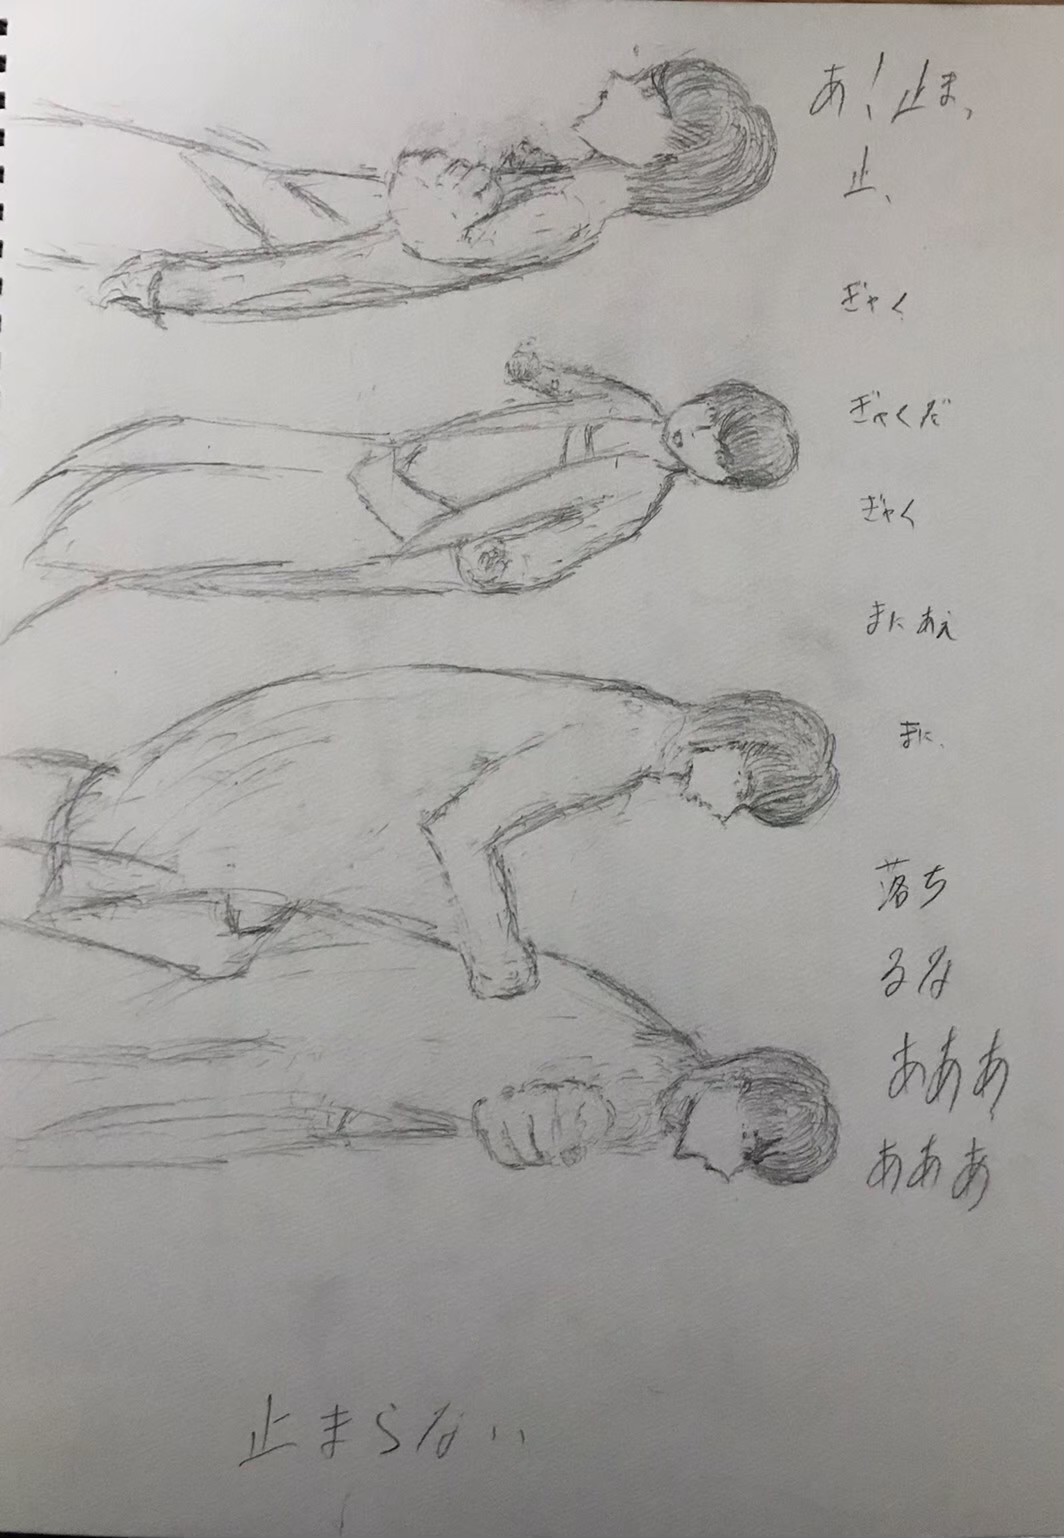 あ!止まっ
止、
ぎゃく
ぎゃくだ
ぎゃく
まにあえ
まに、
落ち
るな
あああ
あああ
止まらない